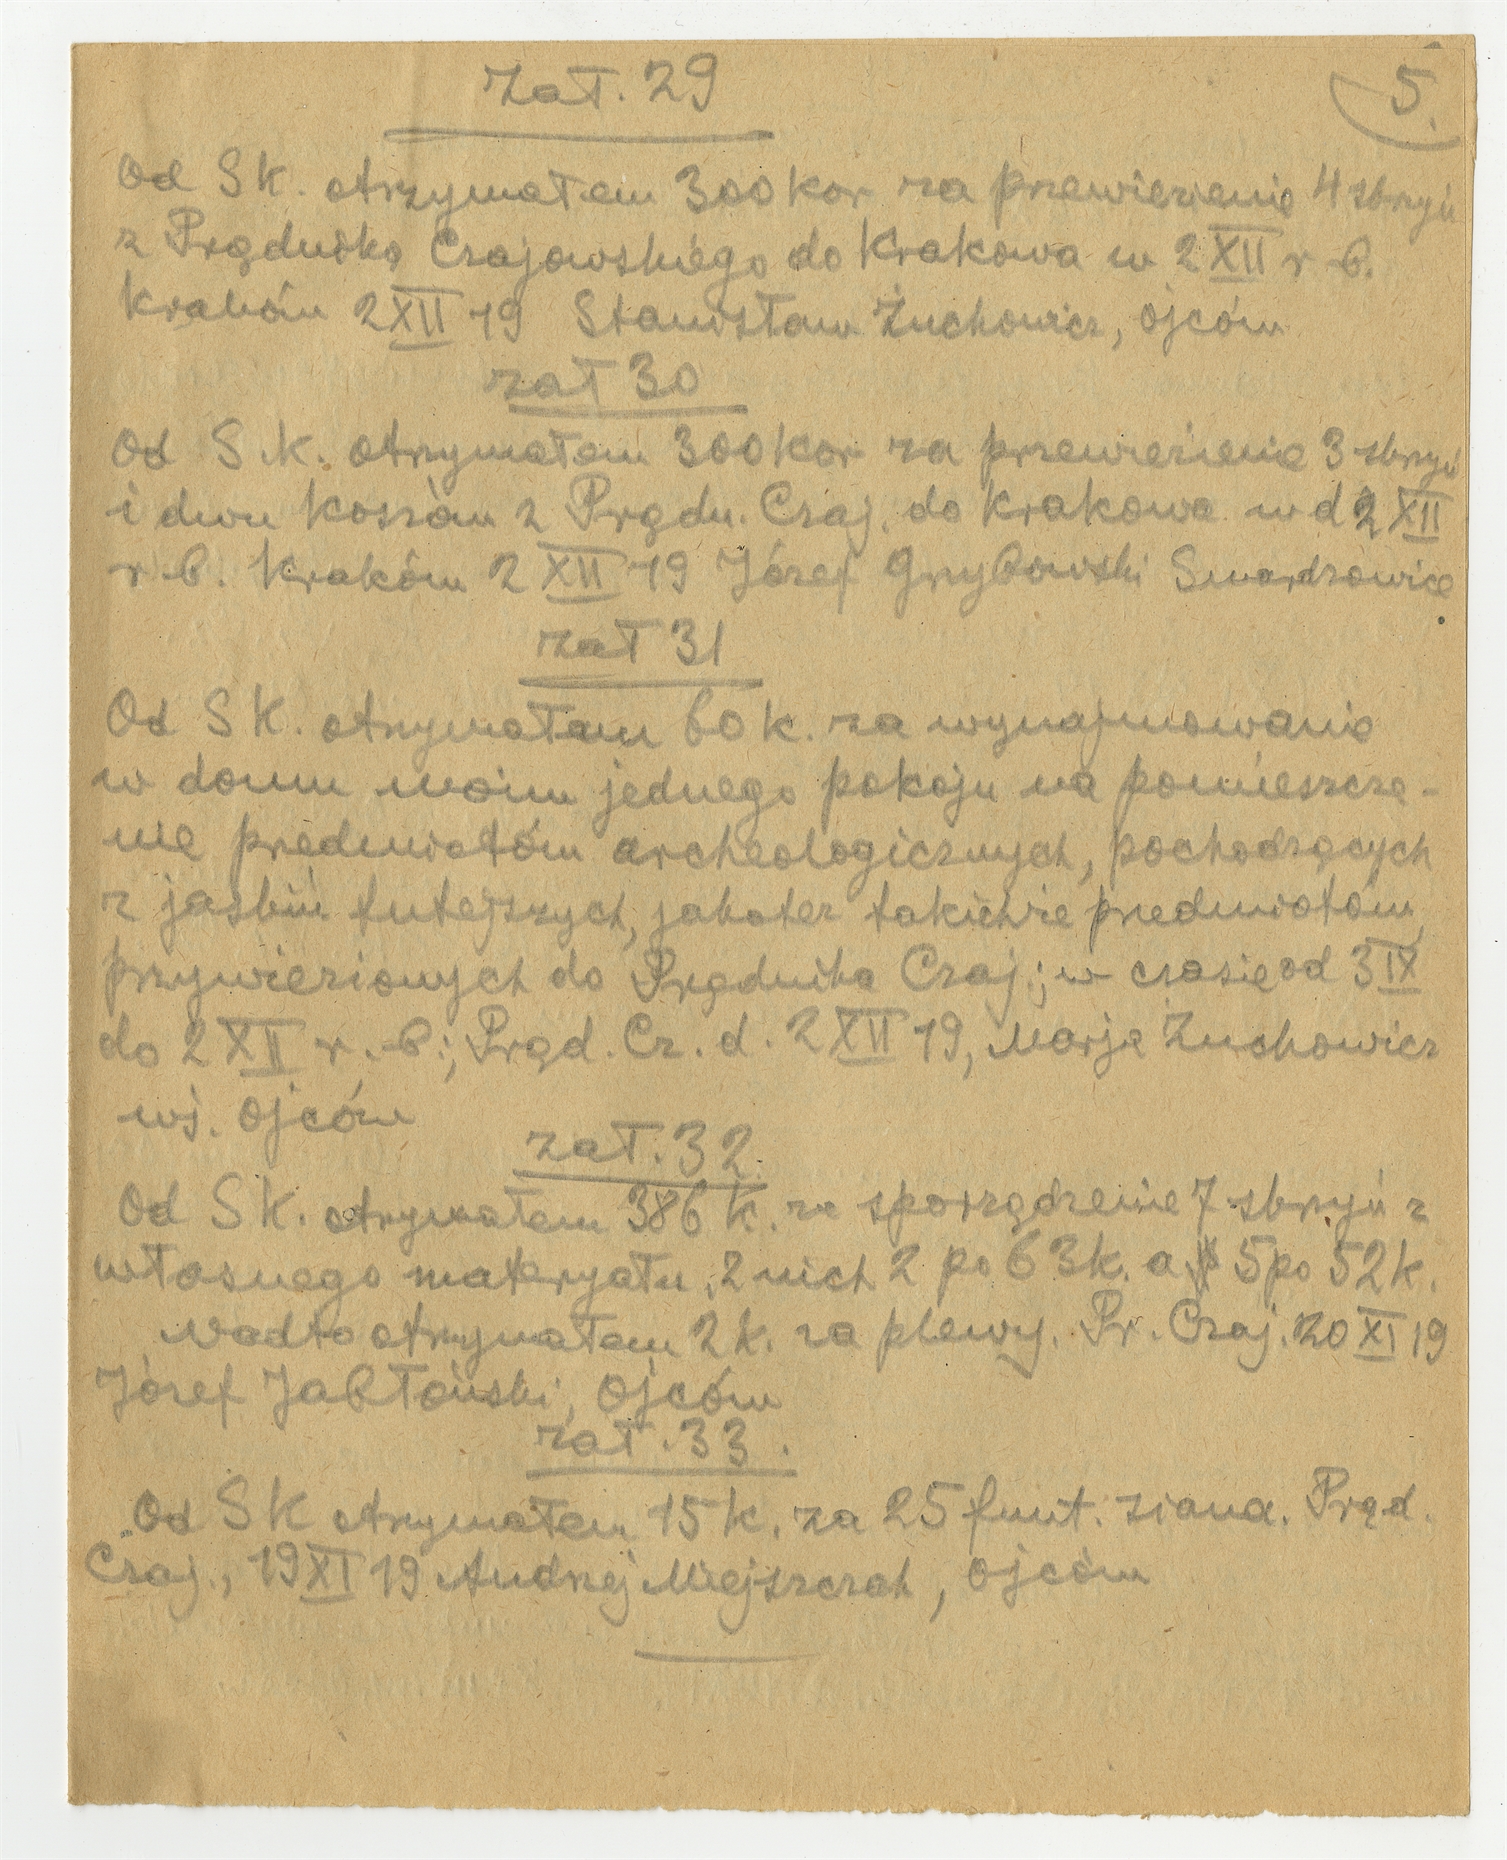 zał. 29
5.
Od S K. otrzymałem 300 kor za przewiezienie 4 skrzyń
z Prądnika Czajowskiego do Krakowa w 2 XII r b.
Kraków 2 XII 19 Stanisław Żuchowicz, Ojców
zał 30
Od S. K. otrzymałem 300 kor za przewiezienie 3 skrzyń
i dwu koszów z Prądn. Czaj. do Krakowa w d 2 XII
r b. Kraków 2 XII 19 Józef Grzybowski Smardzowice
zał 31
Od S K. otrzymałam 60 k. za wynajmowanie
w domu moim jednego pokoju na pomieszcze-
nie przedmiotów archeologicznych, pochodzących
z jaskiń tutejszych, jakoteż takichże przedmiotów,
przywiezionych do Prądnika Czaj.; w czasie od 3 IX
do 2 XII r. b.; Prąd. Cz. d. 2 XII 19, Marja Żuchowicz
wś. Ojców
zał. 32.
Od S K. otrzymałem 386 k. za sporządzenie 7 skrzyń z
własnego materyału, z nich 2 po 63 k. a 5 po 52 k.
Nadto otrzymałem 2 k. za plewy. Pr. Czaj. 20 XI 19
Józef Jabłoński, Ojców
zał. 33.
Od S K otrzymałem 15 k. za 25 funt. siana. Prąd.
Czaj., 19 XI 19 Andrzej Miejszczak, Ojców